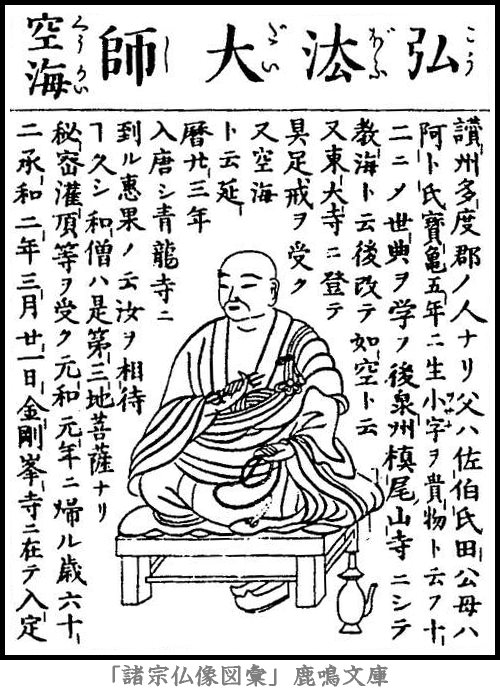 弘法大師 空海
こう ぼふ だい し くう かい
讃州多度郡ノ人ナリ父ハ佐伯氏田公母ハ
阿ト氏寳亀五年ニ生小字ヲ貴物ト云フ十
二ニメ世典ヲ学フ後泉州槙尾山寺ニシテ
教海ト云後改テ如空ト云
又東大寺ニ登テ
具足戒ヲ受ク
又空海
ト云延
暦廿三年
入唐シ青龍寺ニ
到ル惠果ノ云汝ヲ相待
ヿ久シ和僧ハ是第三地菩薩ナリ
秘密灌頂等ヲ受ク元和元年ニ帰ル歳六十
二承和二年三月廿一日金剛峯寺ニ在テ入定
「諸宗仏像図彙」鹿鳴文庫